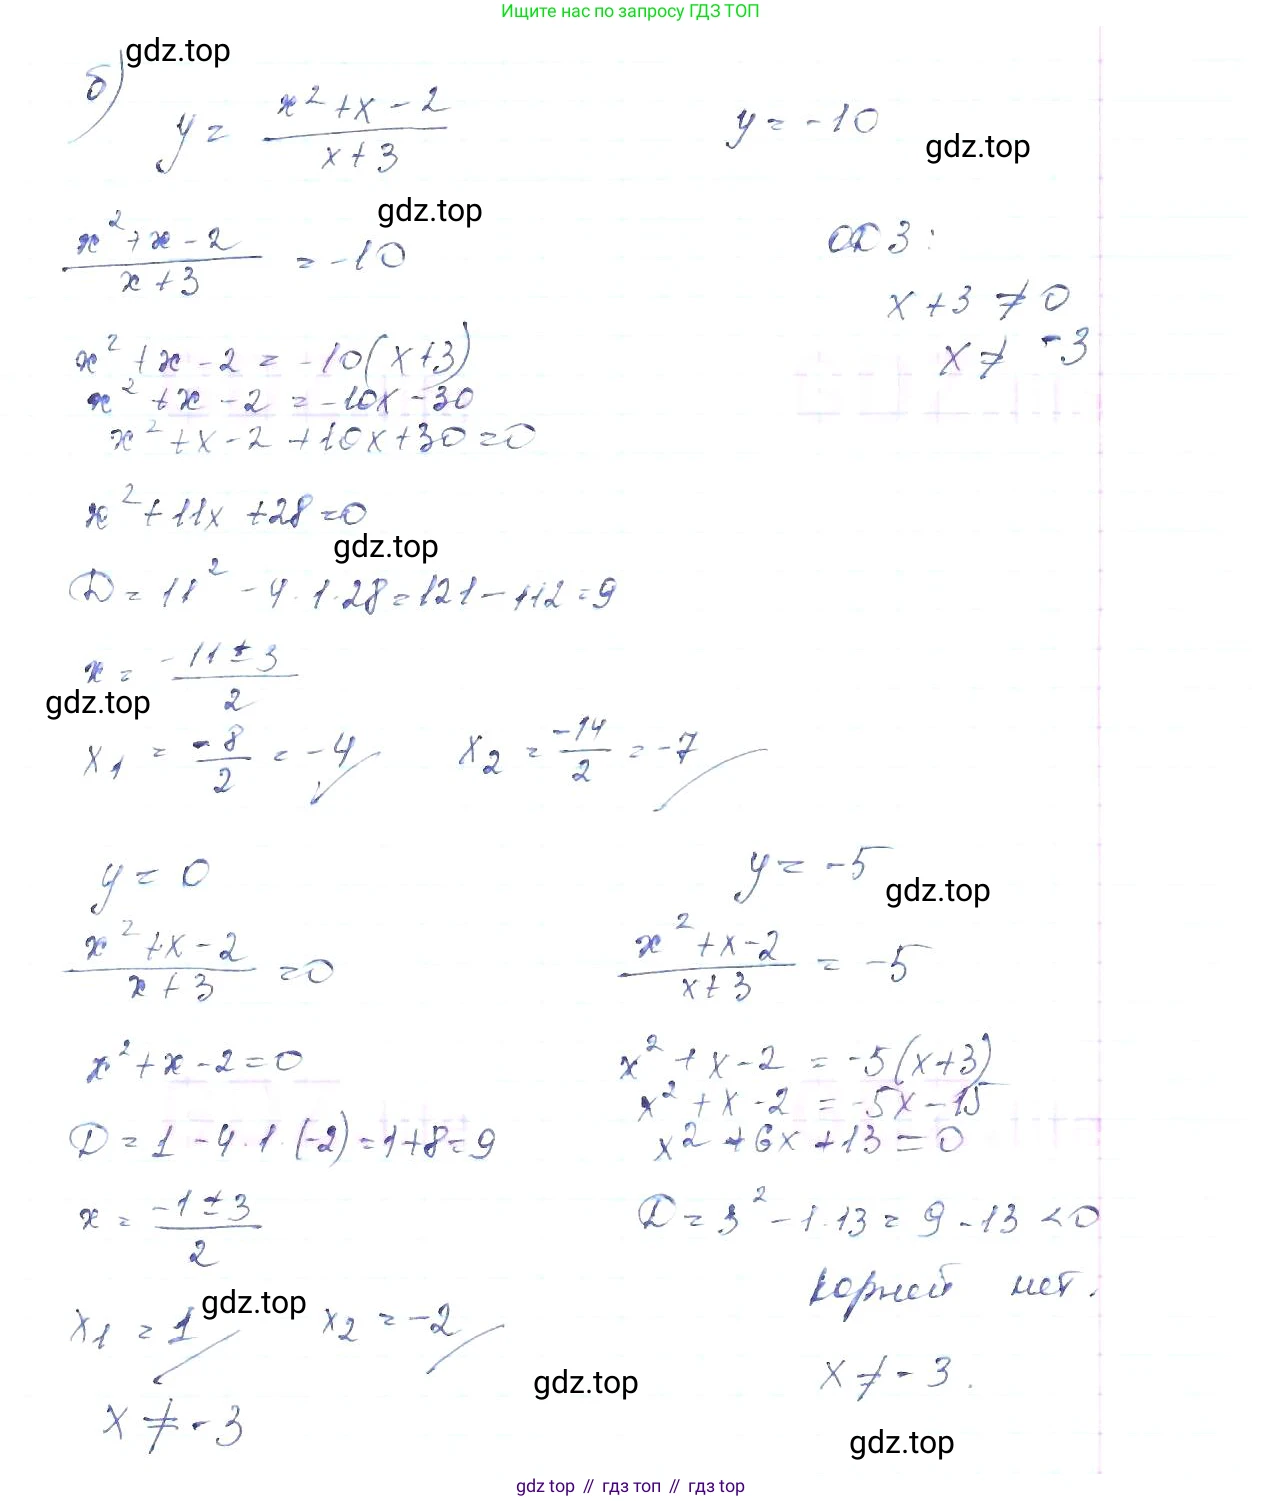 Ищите нас по запросу ГДЗ ТОП
gdz.top
б) y = (x² + x - 2)/(x + 3)    y = -10
gdz.top
gdz.top
(x² + x - 2)/(x + 3) = -10    ОДЗ:
x + 3 ≠ 0
x² + x - 2 = -10(x + 3)    x ≠ -3
x² + x - 2 = -10x - 30
x² + x - 2 + 10x + 30 = 0
x² + 11x + 28 = 0
gdz.top
D = 11² - 4·1·28 = 121 - 112 = 9
x = (-11 ± 3)/2
gdz.top
x₁ = -8/2 = -4    x₂ = -14/2 = -7
y = 0    y = -5
gdz.top
(x² + x - 2)/(x + 3) = 0    (x² + x - 2)/(x + 3) = -5
x² + x - 2 = 0    x² + x - 2 = -5(x + 3)
x² + x - 2 = -5x - 15
D = 1 - 4·1·(-2) = 1 + 8 = 9    x² + 6x + 13 = 0
x = (-1 ± 3)/2    D = 3² - 1·13 = 9 - 13 < 0
корней нет.
gdz.top
x₁ = 1    x₂ = -2
gdz.top
x ≠ -3    x ≠ -3.
gdz.top
gdz top // гдз топ // гдз top